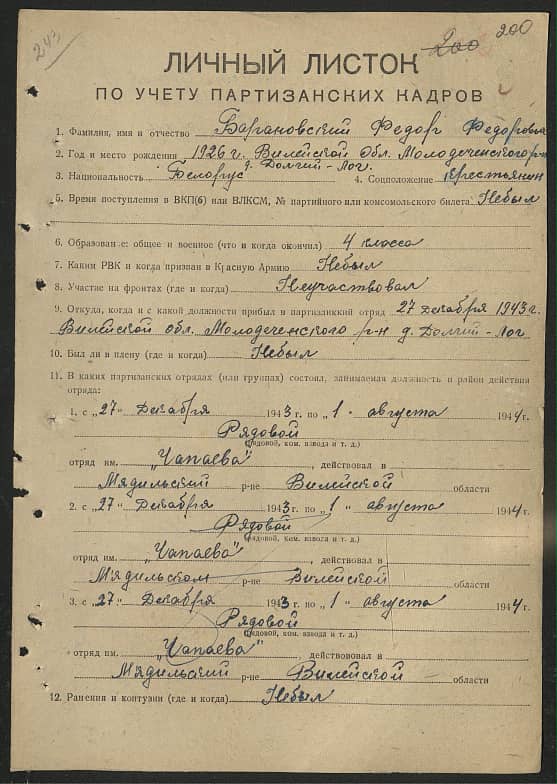 243
200
200
ЛИЧНЫЙ ЛИСТОК
ПО УЧЕТУ ПАРТИЗАНСКИХ КАДРОВ
1. Фамилия, имя и отчество Барановский Федор Федорович
2. Год и место рождения 1926 г. Вилейской Обл. Молодеченского р-н
д. Долгий-Лог.
3. Национальность Белорус 4. Соцположение Крестьянин
5. Время поступления в ВКП(б) или ВЛКСМ, № партийного или комсомольского билета Небыл
6. Образован е: общее и военное (что и когда окончил) 4 класса
7. Каким РВК и когда призван в Красную Армию Небыл
8. Участие на фронтах (где и когда) Неучаствовал
9. Откуда, когда и с какой должности прибыл в партизанкий отряд 27 декабря 1943 г.
Вилейской обл. Молодеченского р-н д. Долгий-Лог
10. Был ли в плену (где и когда) Небыл
11. В каких партизанских отрядах (или группах) состоял, занимаемая должность и район действия
отряда:
1. с „27" Декабря 1943 г. по „1" августа 1944 г.
Рядовой
(рядовой, ком. взвода и т. д.)
отряд им. „Чапаева", действовал в
Мядильский р-не Вилейской области
2. с „27" Декабря 1943 г. по „1" августа 1944 г.
Рядовой
(рядовой, ком. взвода и т. д.)
отряд им. „Чапаева", действовал в
Мядильском р-не Вилейской области
3. с „27" Декабря 1943 г. по „1" августа 1944 г.
Рядовой
(рядовой, ком. взвода и т. д.)
отряд им. „Чапаева", действовал в
Мядильский р-не Вилейской области
12. Ранения и контузии (где и когда) Небыл